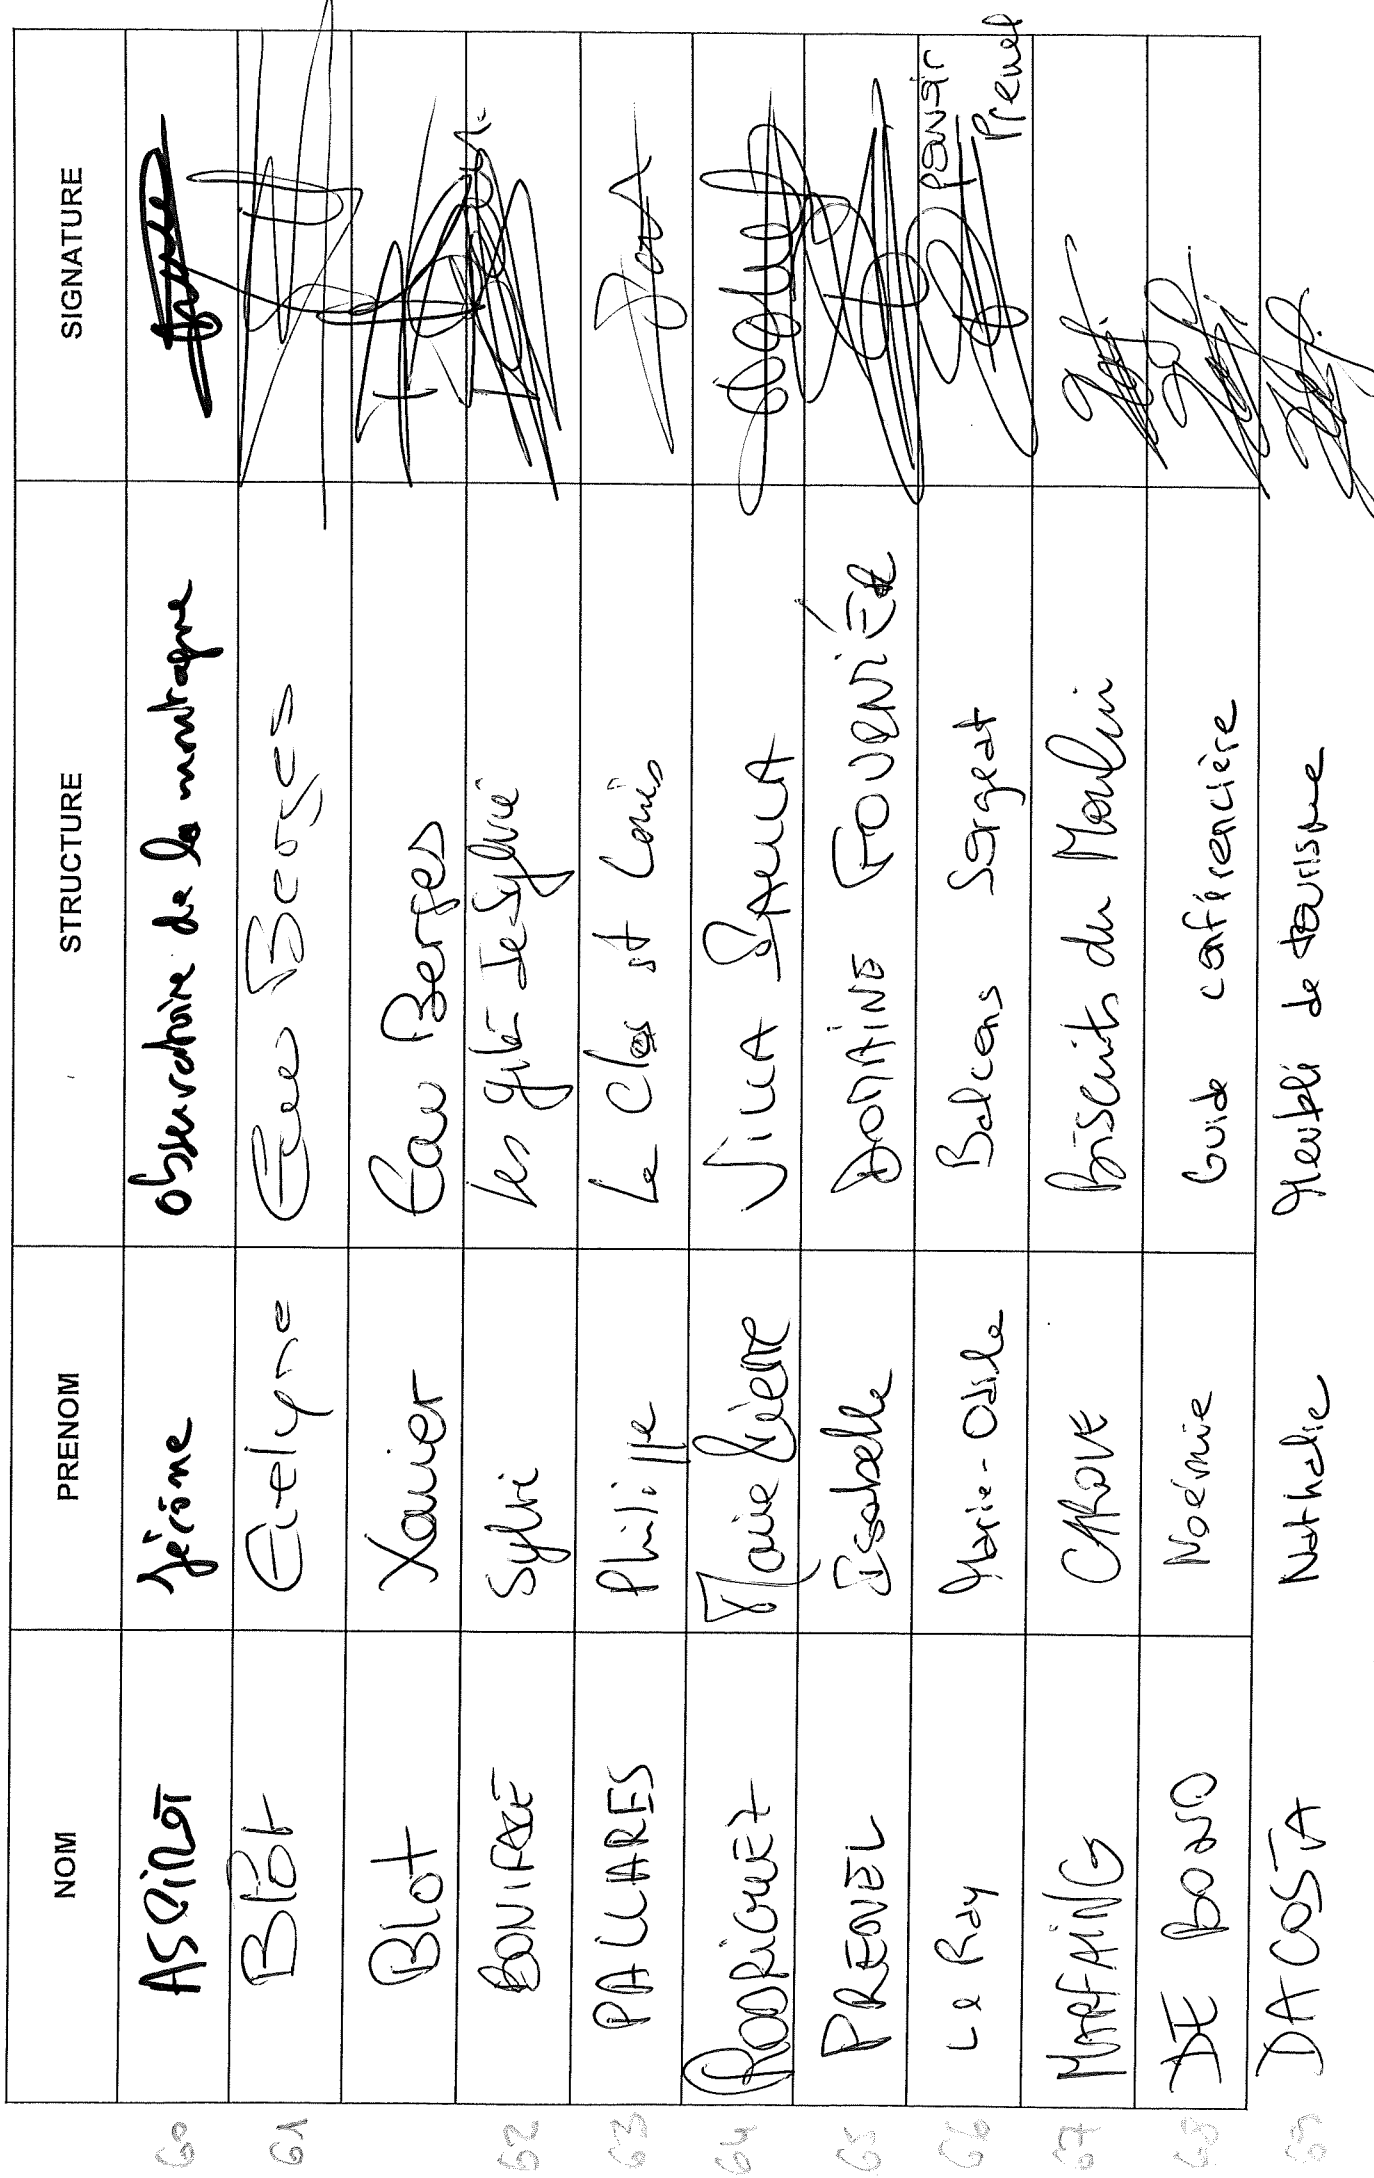 NOM PRENOM STRUCTURE SIGNATURE
60 ASPIROT Jérôme Observatoire de la montagne
61 Blot Evelyne Eau Berges
Blot Xavier Eau Berges
62 BONIFACE Sylvi Les gîtes Je-Sylvie
63 PALLARES Philippe Le Clos st Louis
64 RODRIGUEZ Marie Pierre VILLA
65 PREUVEL Isabelle DOMAINE FOURNIÉ
66 Le Ray Marie-Odile Balcons Sargeat pouvoir
67 MARFAING CAROLE Biscuits du Moulin
68 DE BONO Noémie Guide conférencière
69 DA COSTA Nathalie Meublé de tourisme